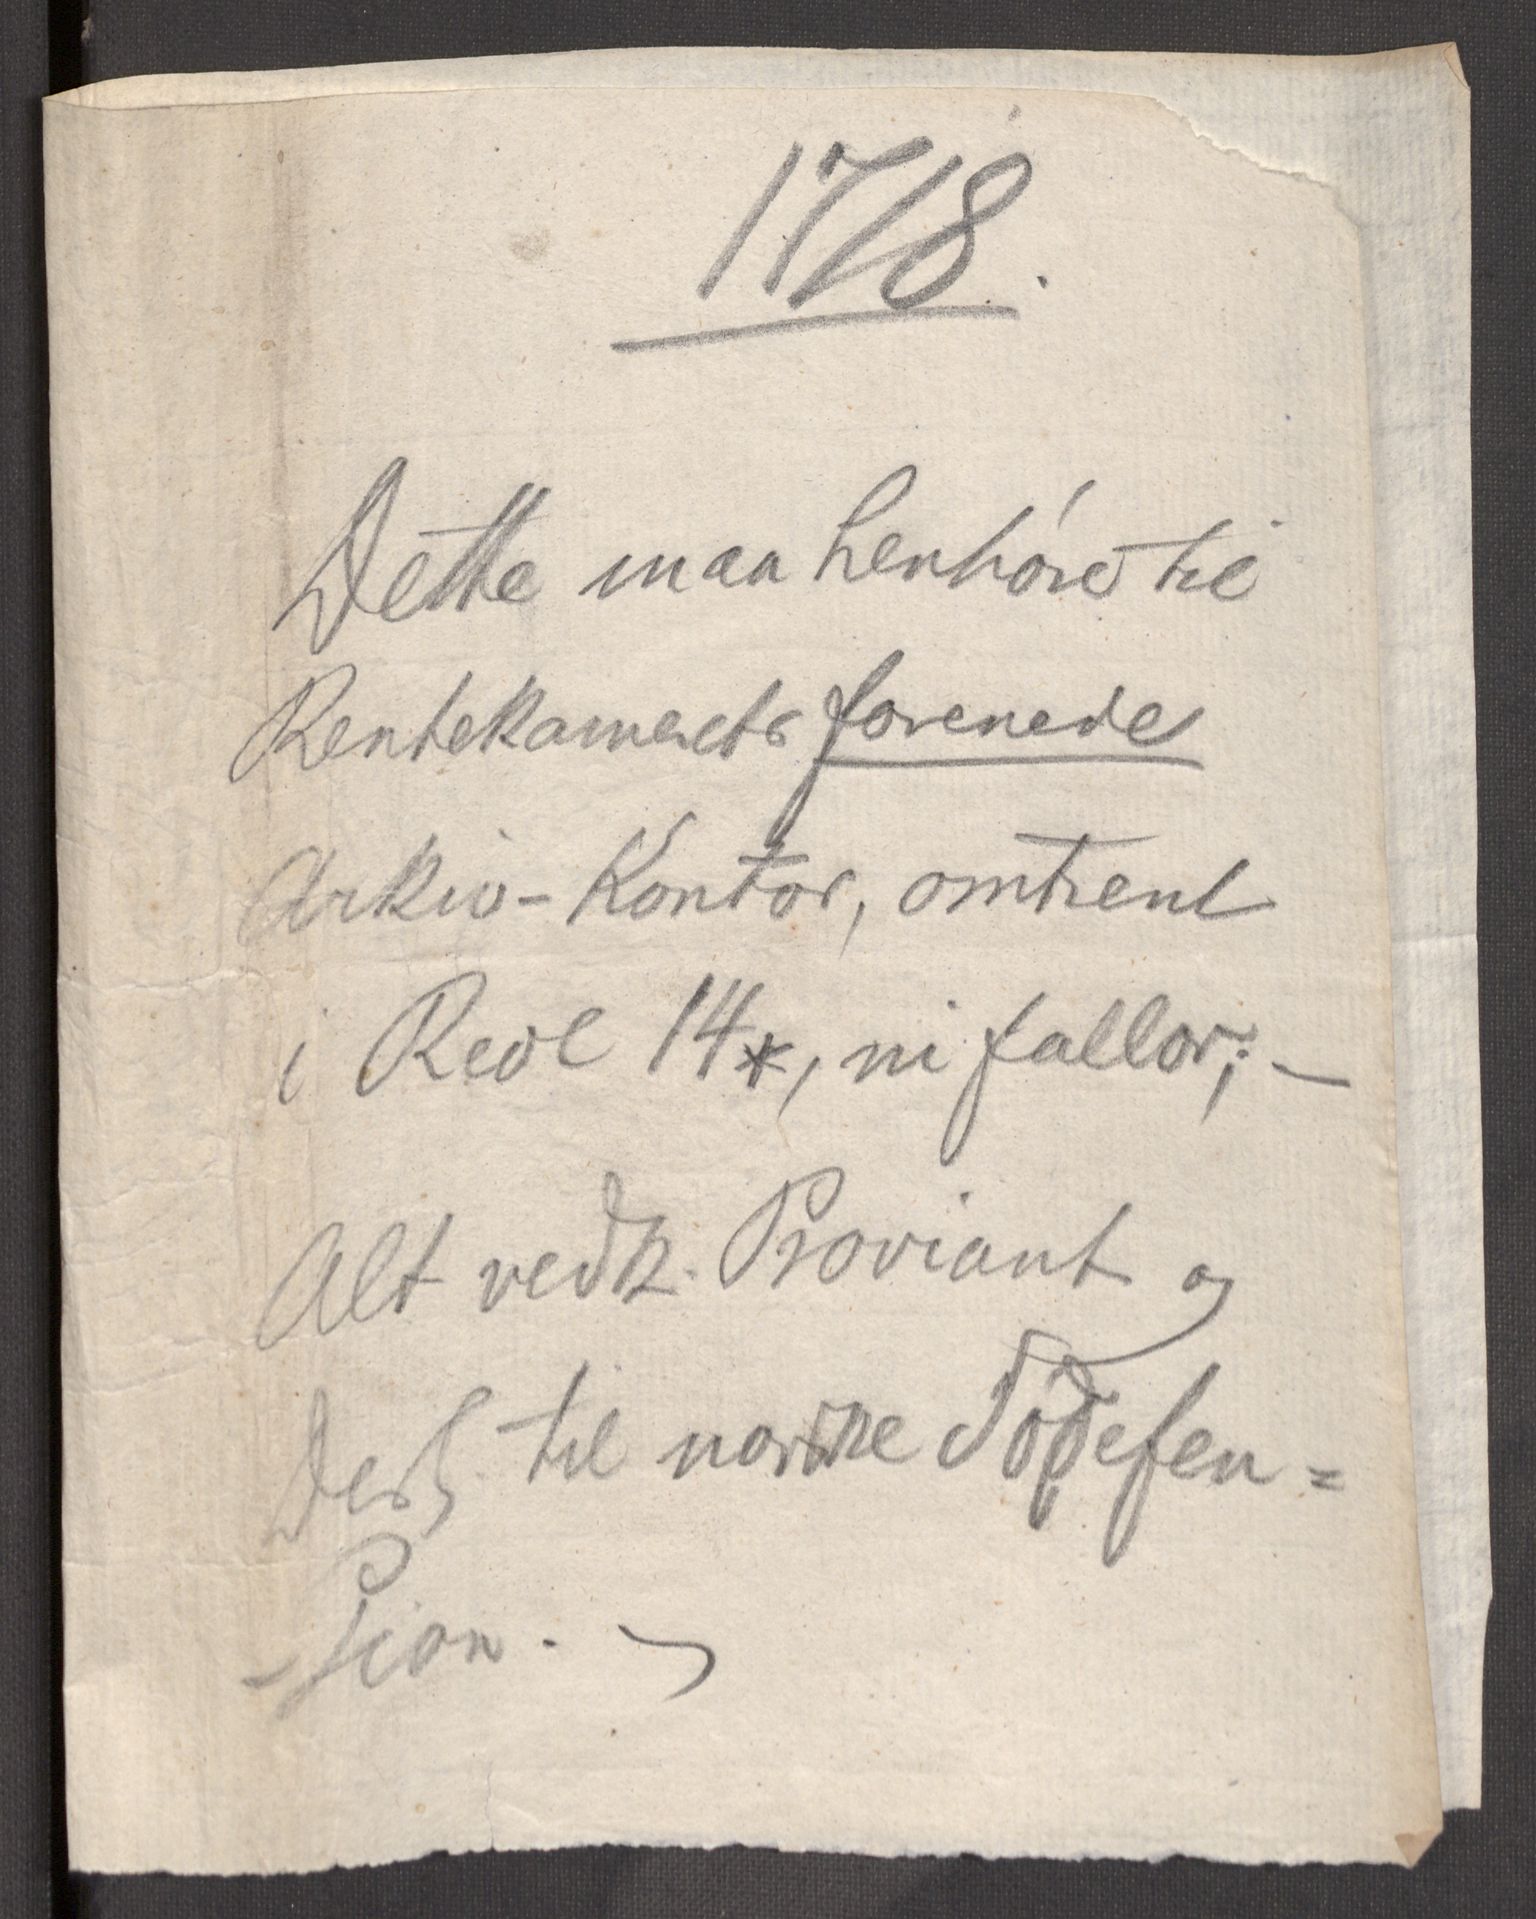 1718.
Dette maa henhøre til
Rentekamerets forenede
Arkiv-Kontor, omtrent
i Reol 14*, ni fallor; —
Alt vedk. Proviant og
desl. til norske Sødefen=
-sion.